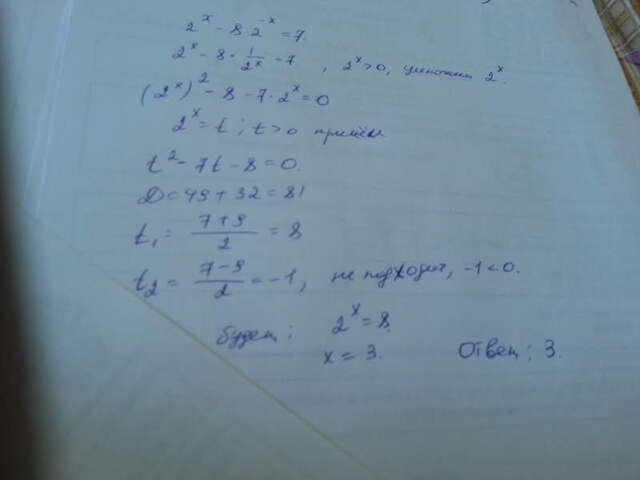 2^x - 8·2^-x = 7
2^x - 8·1/2^x - 7 , 2^x>0, умножим 2^x.
(2^x)^2 - 8 - 7·2^x = 0
2^x = t ; t>0 примем
t^2 - 7t - 8 = 0.
D = 49 + 32 = 81
t₁ = (7+9)/2 = 8
t₂ = (7-9)/2 = -1, не подходит, -1<0.
будет: 2^x = 8.
x = 3. Ответ: 3.